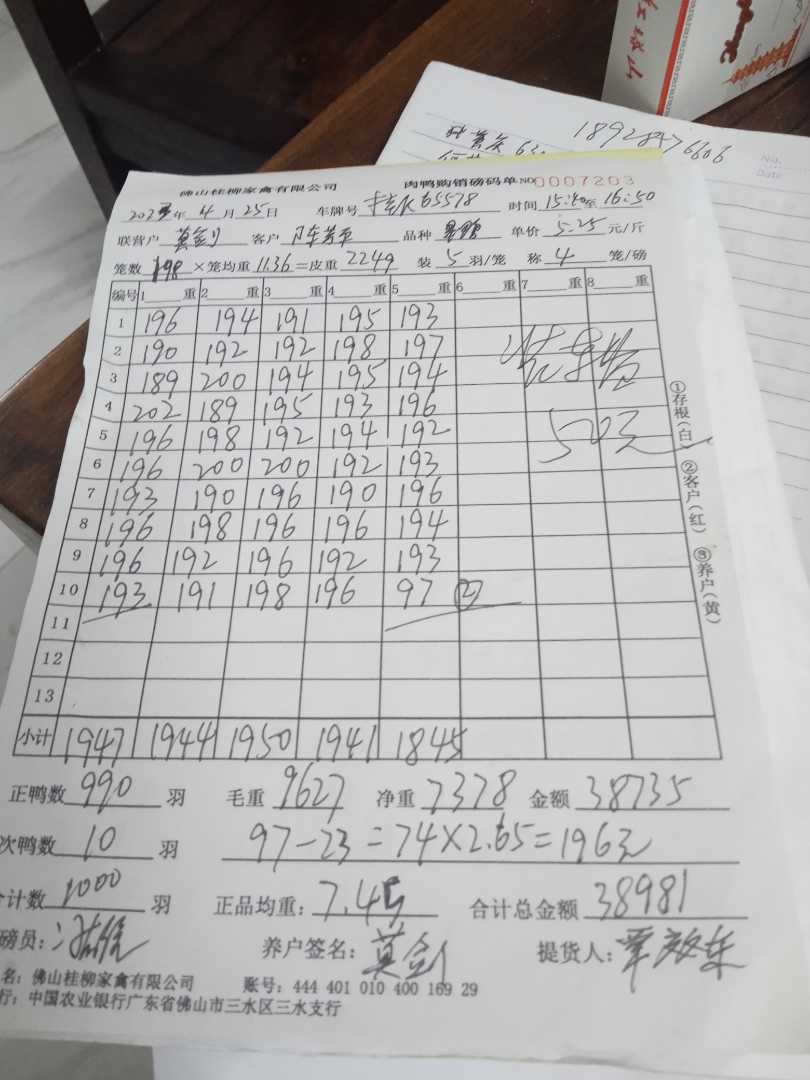 18928476606
佛山桂柳家禽有限公司 肉鸭购销磅码单 NO 0007203
2023年 4月 25日 车牌号 65578 时间 15:40至 16:50
联营户 莫剑 客户 陈芳平 品种 单价 5.25 元/斤
笼数 198 ×笼均重 11.36 =皮重 2249 装 5 羽/笼 称 4 笼/磅
编号 1 重 2 重 3 重 4 重 5 重 6 重 7 重 8 重
1 196 194 191 195 193
2 190 192 192 198 197
3 189 200 194 195 194
4 202 189 195 193 196
5 196 198 192 194 192
6 196 200 200 192 193
7 193 190 196 190 196
8 196 198 196 196 194
9 196 192 196 192 193
10 193 191 198 196 97 ②
11
12
13
装车给
50元
小计 1947 1944 1950 1941 1845
正鸭数 990 羽 毛重 9627 净重 7378 金额 38735
次鸭数 10 羽 97-23=74×2.65=196元
合计数 1000 羽 正品均重: 7.45 合计总金额 38981
磅员: 养户签名: 莫剑 提货人:
名: 佛山桂柳家禽有限公司 账号: 444 401 010 400 169 29
行: 中国农业银行广东省佛山市三水区三水支行
①存根(白) ②客户(红) ③养户(黄)